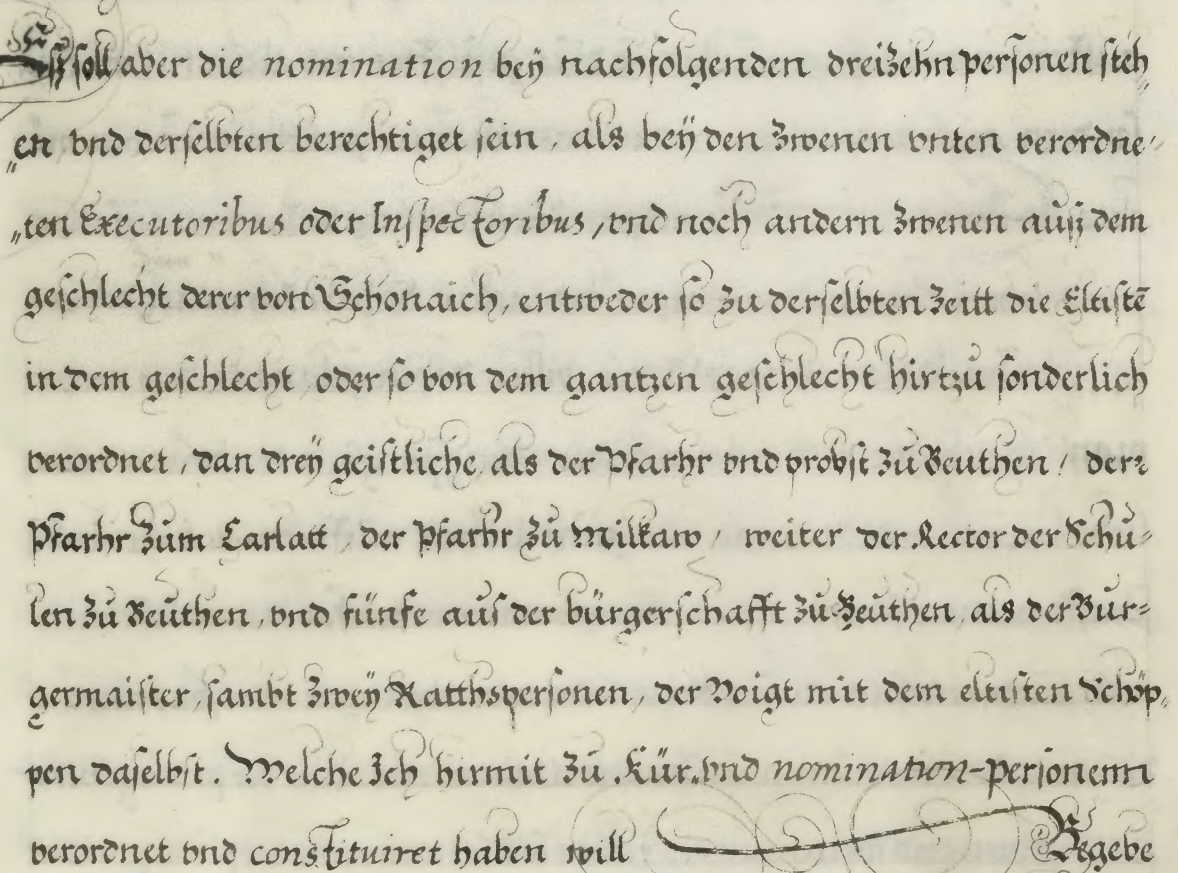 Eß soll aber die nomination beÿ nachfolgenden dreizehn personen steh„
„en vnd derselbten berechtiget sein, als beÿ den zwenen vnten verordne„
„ten Executoribus oder Inspectoribus, vnd noch andern zwenen auß dem
geschlecht derer von Schonaich, entweder so zu derselbten zeitt die Eltistē
in dem geschlecht, oder so von dem gantzen geschlecht hirtzu sonderlich
verordnet, dan dreÿ geistliche als der Pfarhr vnd probst zu Beuthen, der
Pfarhr zum Carlatt, der Pfarhr zu Milkaw, weiter der Rector der Schu=
len zu Beuthen, vnd fünfe aus der bürgerschafft zu Beuthen, als der Bur=
germaister, sambt zweÿ Ratthspersonen, der Voigt mit dem eltisten Schöp„
pen daselbst. Welche Ich hirmit zu Kür vnd nomination-personenn
verordnet vnd constituiret haben will Begebe